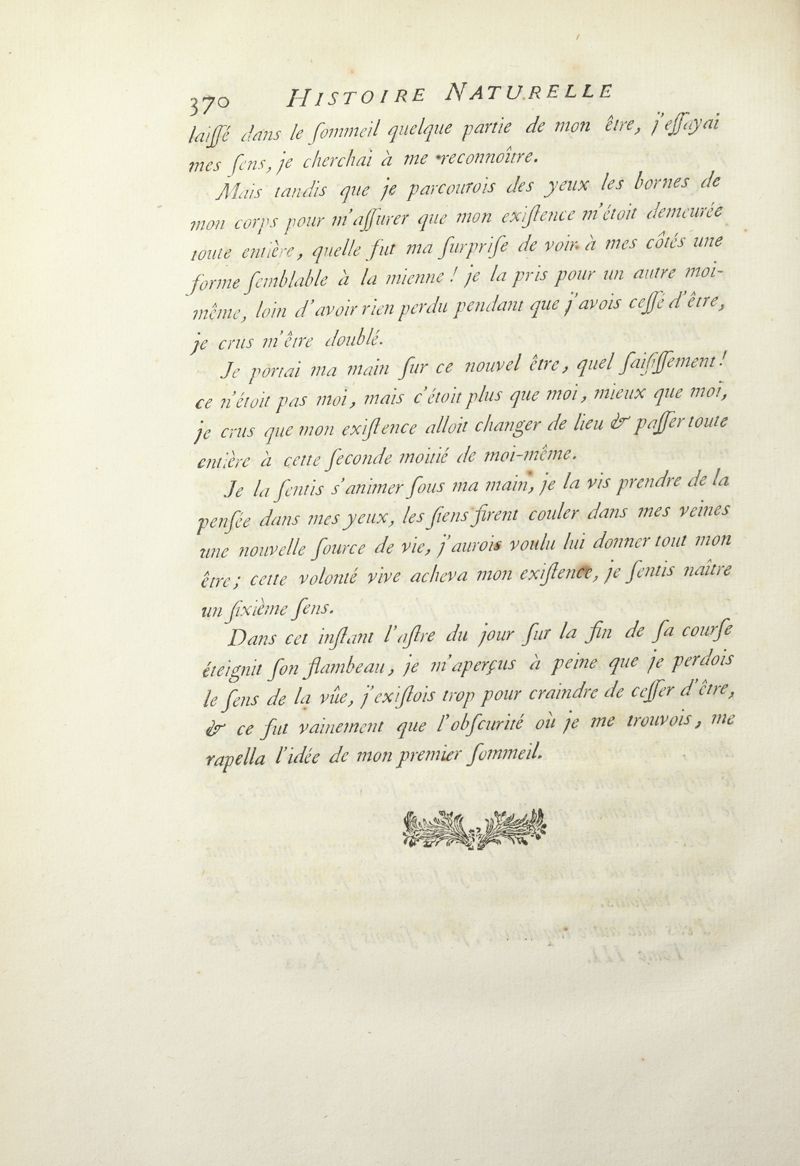 370 HISTOIRE NATURELLE
laiſſé dans le ſommeil quelque partie de mon être, j'eſſayai
mes ſens, je cherchai à me reconnoître.
Mais tandis que je parcourois des yeux les bornes de
mon corps pour m'aſſurer que mon exiſtence m'étoit demeurée
toute entière, quelle fut ma ſurpriſe de voir à mes côtés une
forme ſemblable à la mienne ! je la pris pour un autre moi-
même, loin d'avoir rien perdu pendant que j'avois ceſſé d'être,
je crus m'être doublé.
Je portai ma main ſur ce nouvel être, quel ſaiſiſſement !
ce n'étoit pas moi, mais c'étoit plus que moi, mieux que moi,
je crus que mon exiſtence alloit changer de lieu & paſſer toute
entière à cette ſeconde moitié de moi-même.
Je la ſentis s'animer ſous ma main, je la vis prendre de la
penſée dans mes yeux, les ſiens firent couler dans mes veines
une nouvelle ſource de vie, j'aurois voulu lui donner tout mon
être; cette volonté vive acheva mon exiſtence, je ſentis naître
un ſixième ſens.
Dans cet inſtant l'aſtre du jour ſur la fin de ſa courſe
éteignit ſon flambeau, je m'aperçus à peine que je perdois
le ſens de la vûe, j'exiſtois trop pour craindre de ceſſer d'être,
& ce fut vainement que l'obſcurité où je me trouvois, me
rapella l'idée de mon premier ſommeil.